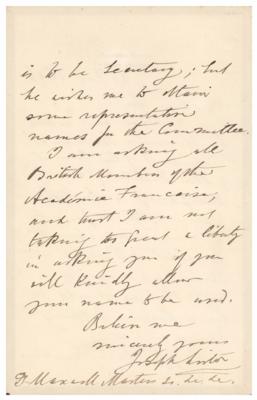 is to be Secretary; but
he wishes me to obtain
some representative
names for the Committee.
I am asking all
British Members of the
Académie Francaise,
and trust I am not
taking too great a liberty
in asking you if you
will kindly allow
your name to be used.
Believe me
sincerely yours
Joseph Lister
Dr Maxwell Masters &c. &c. &c.